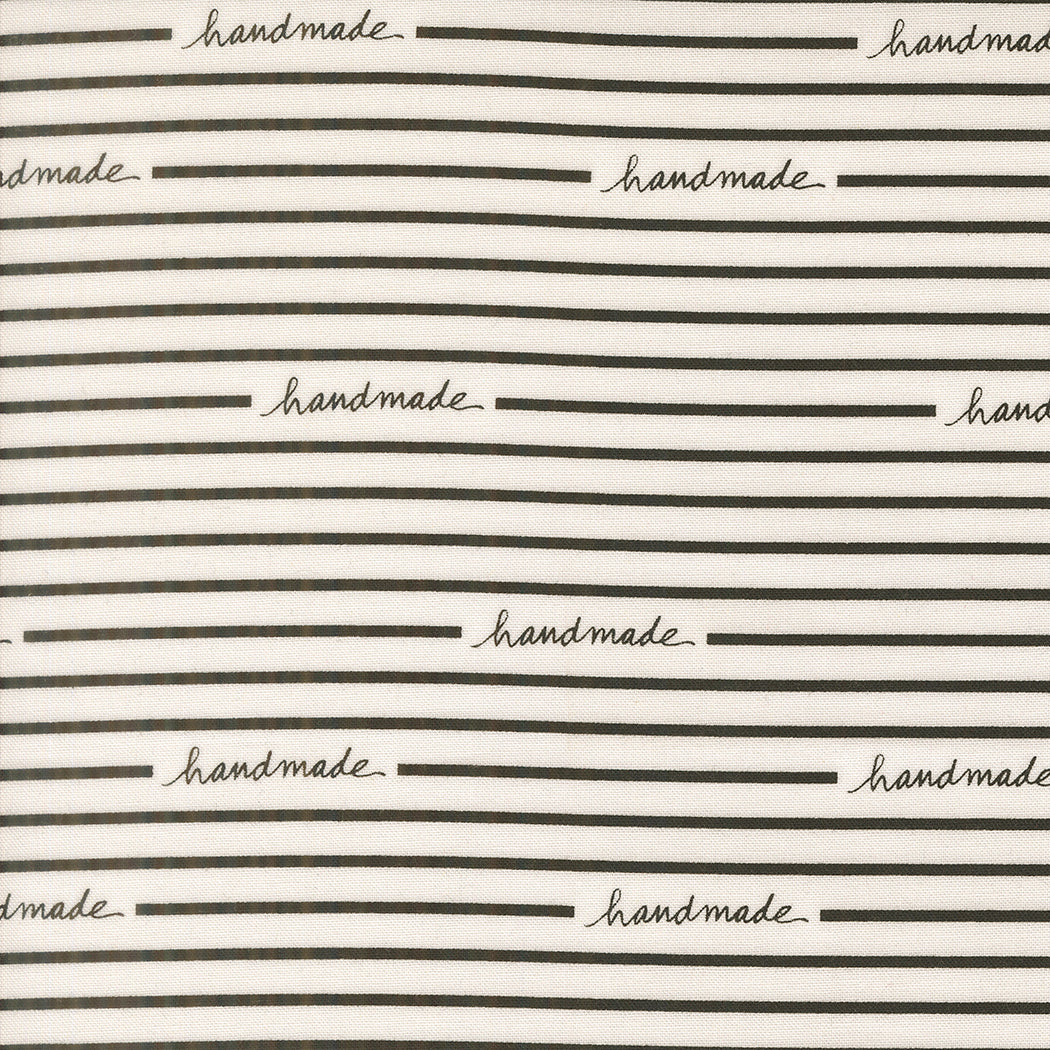 handmade handmad
ndmade handmade
handmade hand
handmade
handmade handmade
dmade handmade